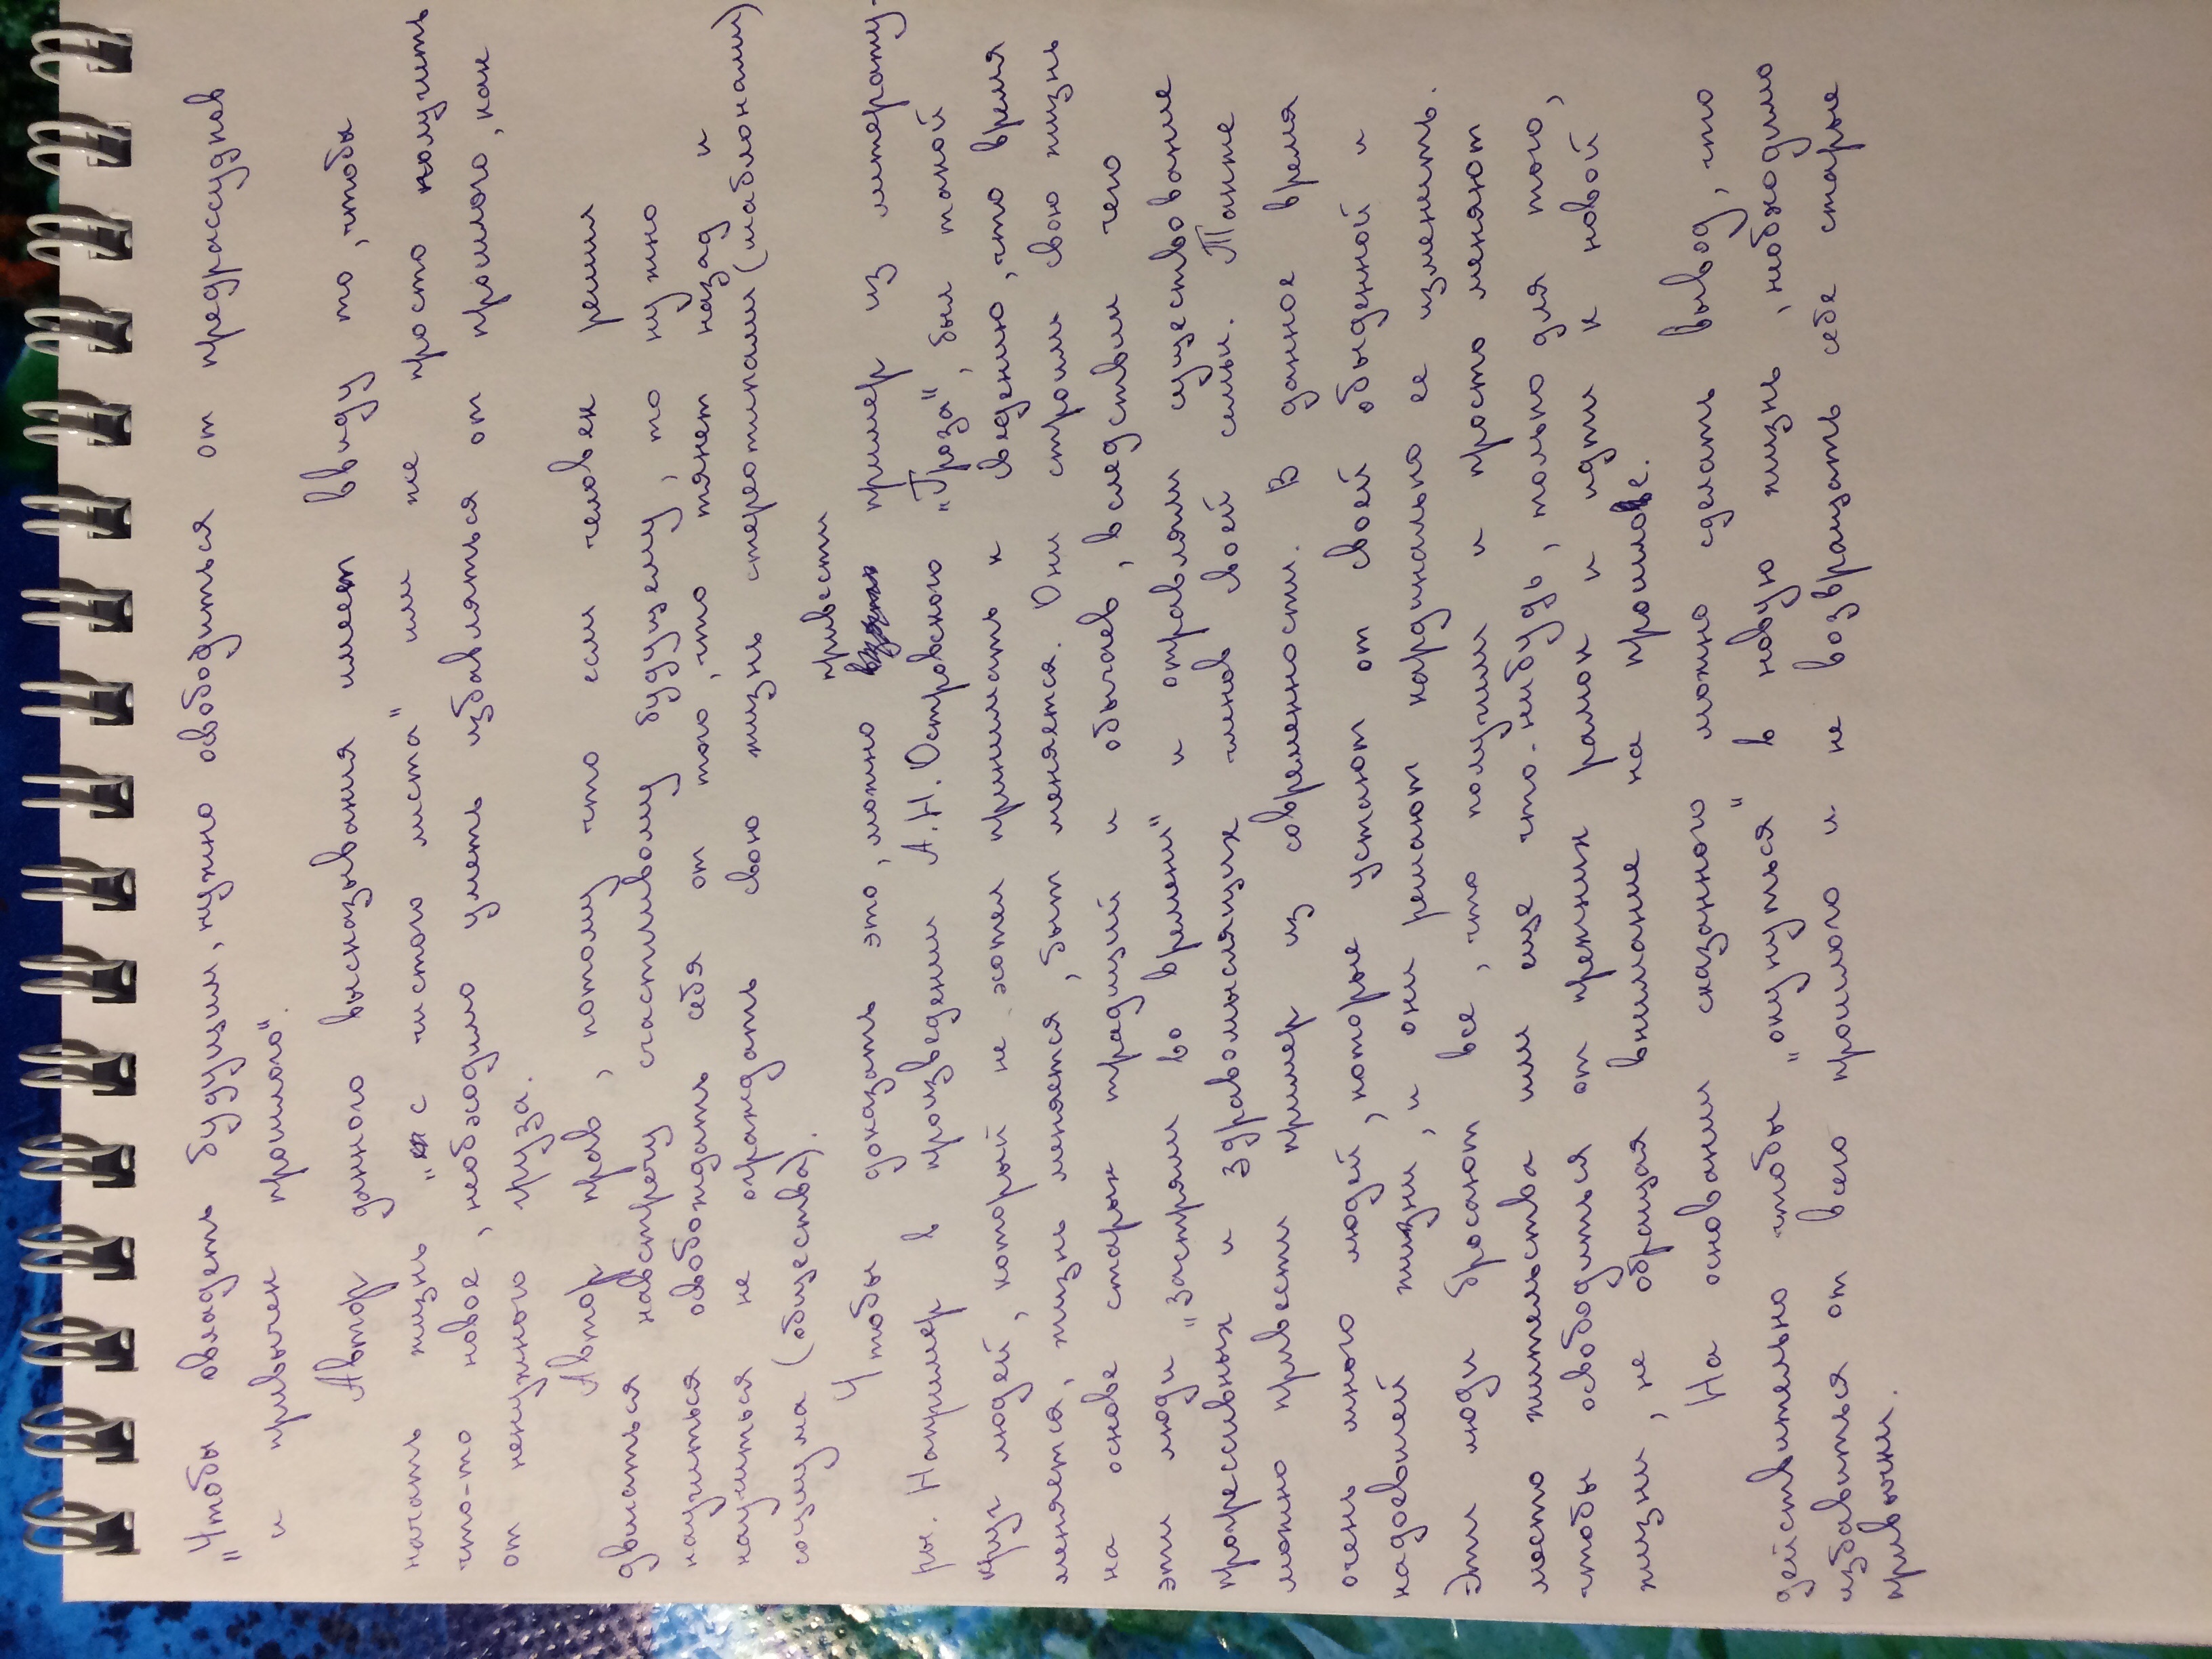 "Чтобы овладеть будущим, нужно освободиться от предрассудков
и привычек прошлого".
Автор данного высказывания имеет ввиду то, чтобы
начать жизнь "с чистого листа" или не просто получить
что-то новое, необходимо уметь избавляться от прошлого, как
от ненужного груза.
Автор прав, потому что если человек решил
двигаться навстречу счастливому будущему, то нужно
научиться освобождать себя от того, что тянет назад и
научиться не ограждать свою жизнь стереотипами (шаблонами)
социума (общества).
привести
Чтобы доказать это, можно взять пример из литерату-
ры. Например в произведении А.Н.Островского "Гроза", был такой
круг людей, который не хотел принимать к сведению, что время
меняется, жизнь меняется, быт меняется. Они строили свою жизнь
на основе старых традиций и обычаев, вследствии чего
эти люди "застряли во времени" и отравляли существование
прогрессивных и здравомыслящих членов своей семьи. Также
можно привести пример из современности. В данное время
очень много людей, которые устают от своей обыденной и
надоевшей жизни, и они решают кардинально ее изменить.
Эти люди бросают все, что получили и просто меняют
место жительства или еще что-нибудь, только для того,
чтобы освободиться от прежних рамок и идти к новой
жизни, не обращая внимание на прошлое.
На основании сказанного можно сделать вывод, что
действительно чтобы "окунуться" в новую жизнь, необходимо
избавиться от всего прошлого и не возвращать себе старые
привычки.